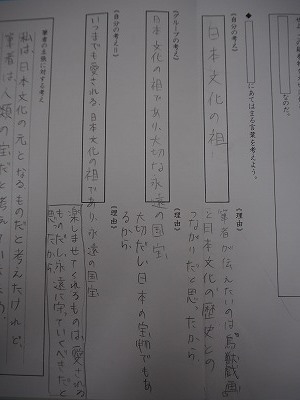 なのだ。
◆
にあてはまる言葉を考えよう。
(自分の考え)
日本文化の祖!
(理由)
筆者が伝えたいのは"鳥獣戯画"
と日本文化の歴史との
つながりだと思ったから
(グループの考え)
日本文化の祖であり、大切な永遠の国宝
(理由)
大切だし、日本の宝物でもあ
るから。
(自分の考えⅡ)
いつまでも愛される、日本文化の祖であり、永遠の国宝
(理由)
楽しませてくれるものは、愛される
ものだし、永遠に守っていくべきだと
思ったから。
筆者の主張に対する考え
私は、日本文化の元となるものだと考えたけれど、
筆者は、人類の宝だと考えて